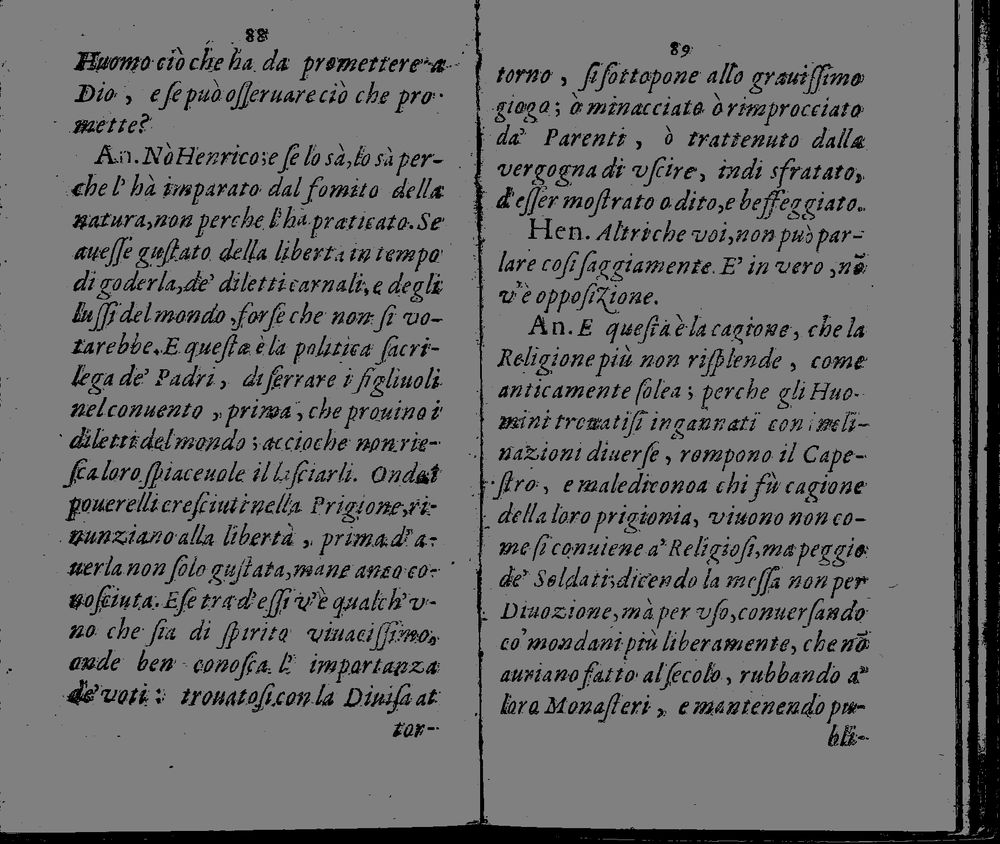 88
Huomo ciò che ha da promettere a
Dio, e se può osseruare ciò che pro-
mette?
An. Nò Henrico; e se lo sà, lo sà per-
che l' hà imparato dal fomito della
natura, non perche l' ha praticato. Se
auesse gustato della liberta in tempo
di goderla, de' diletti carnali, e degli
lussi del mondo, forse che non si vo-
tarebbe. E questa è la politica sacri-
lega de' Padri, di serrare i figliuoli
nel conuento, prima, che prouino i
diletti del mondo; accioche non rie-
sca loro spiaceuole il lasciarli. Onde i
pouerelli cresciuti nella Prigione, ri-
nunziano alla libertà, prima d' a-
uerla non solo gustata, ma ne anco co-
nosciuta. E se tra d' essi v' è qualch' v-
no che sia di spirito viuacissimo,
onde ben conosca l' importanza
de' voti: trouatosi con la Diuisa at
tor-
89
torno, si sottopone allo grauissimo
giogo; ò minacciato ò rimprocciato
da' Parenti, ò trattenuto dalla
vergogna di vscire, indi sfratato,
d'esser mostrato a dito, e beffeggiato.
Hen. Altri che voi, non può par-
lare cosi saggiamente. E' in vero, nō
v' è opposizione.
An. E questa è la cagione, che la
Religione più non risplende, come
anticamente solea; perche gli Huo-
mini trouatisi ingannati con incli-
nazioni diuerse, rompono il Cape-
stro, e maledicono a chi fù cagione
della loro prigionia, viuono non co-
me si conuiene a' Religiosi, ma peggio
de' Soldati; dicendo la messa non per
Diuozione, mà per vso, conuersando
co' mondani più liberamente, che nō
auriano fatto al secolo, rubbando a'
loro Monasteri, e mantenendo pu-
bli-